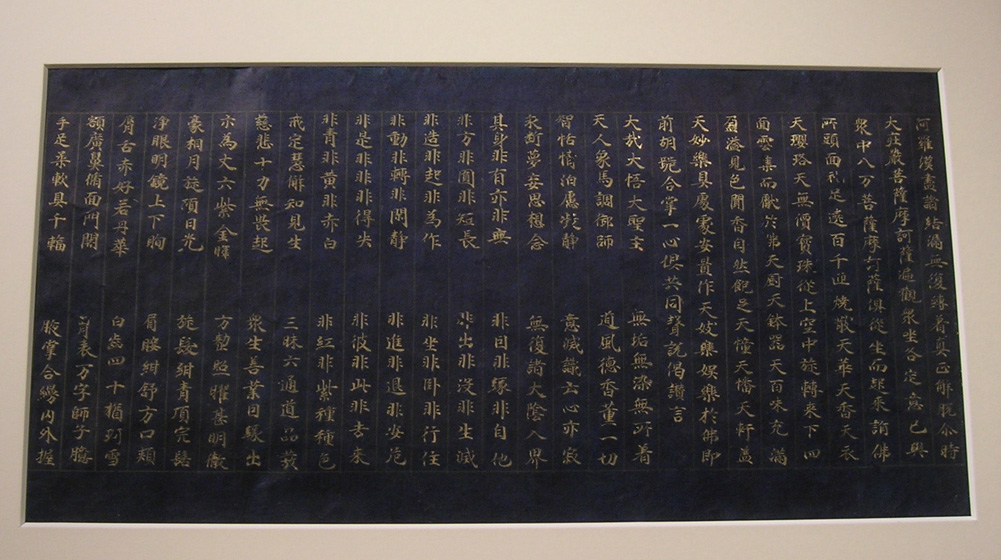 阿羅漢盡諸結漏無復縛著真正解脫尒時
大莊嚴菩薩摩訶薩遍觀眾坐各定意已與
眾中八万菩薩摩訶薩俱從坐而起來詣佛
所頭面礼足遶百千匝燒散天華天香天衣
天瓔珞天無價寶珠從上空中旋轉來下四
面雲集而獻於佛天廚天鉢器天百味充滿
盈溢見色聞香自然飽足天幢天幡天軒蓋
天妙樂具處處安置作天妓樂娛樂於佛即
前胡跪合掌一心俱共同聲說偈讚言
大哉大悟大聖主 無垢無染無所著
天人象馬調御師 道風德香薰一切
智恬情泊慮凝靜 意滅識亡心亦寂
永斷夢妄思想念 無復諸大陰入界
其身非有亦非無 非因非緣非自他
非方非圓非短長 非出非沒非生滅
非造非起非為作 非坐非臥非行住
非動非轉非閑靜 非進非退非安危
非是非非非得失 非彼非此非去來
非青非黃非赤白 非紅非紫種種色
戒定慧解知見生 三昧六通道品發
慈悲十力無畏起 眾生善業因緣出
示為丈六紫金暉 方整照曜甚明徹
豪相月旋項日光 旋髮紺青頂完髻
淨眼明鏡上下眴 眉睫紺舒方口頰
脣舌赤好若丹華 白齒四十猶珂雪
額廣鼻脩面門開 胸表万字師子臆
手足柔軟具千輻 腋掌合縵內外握